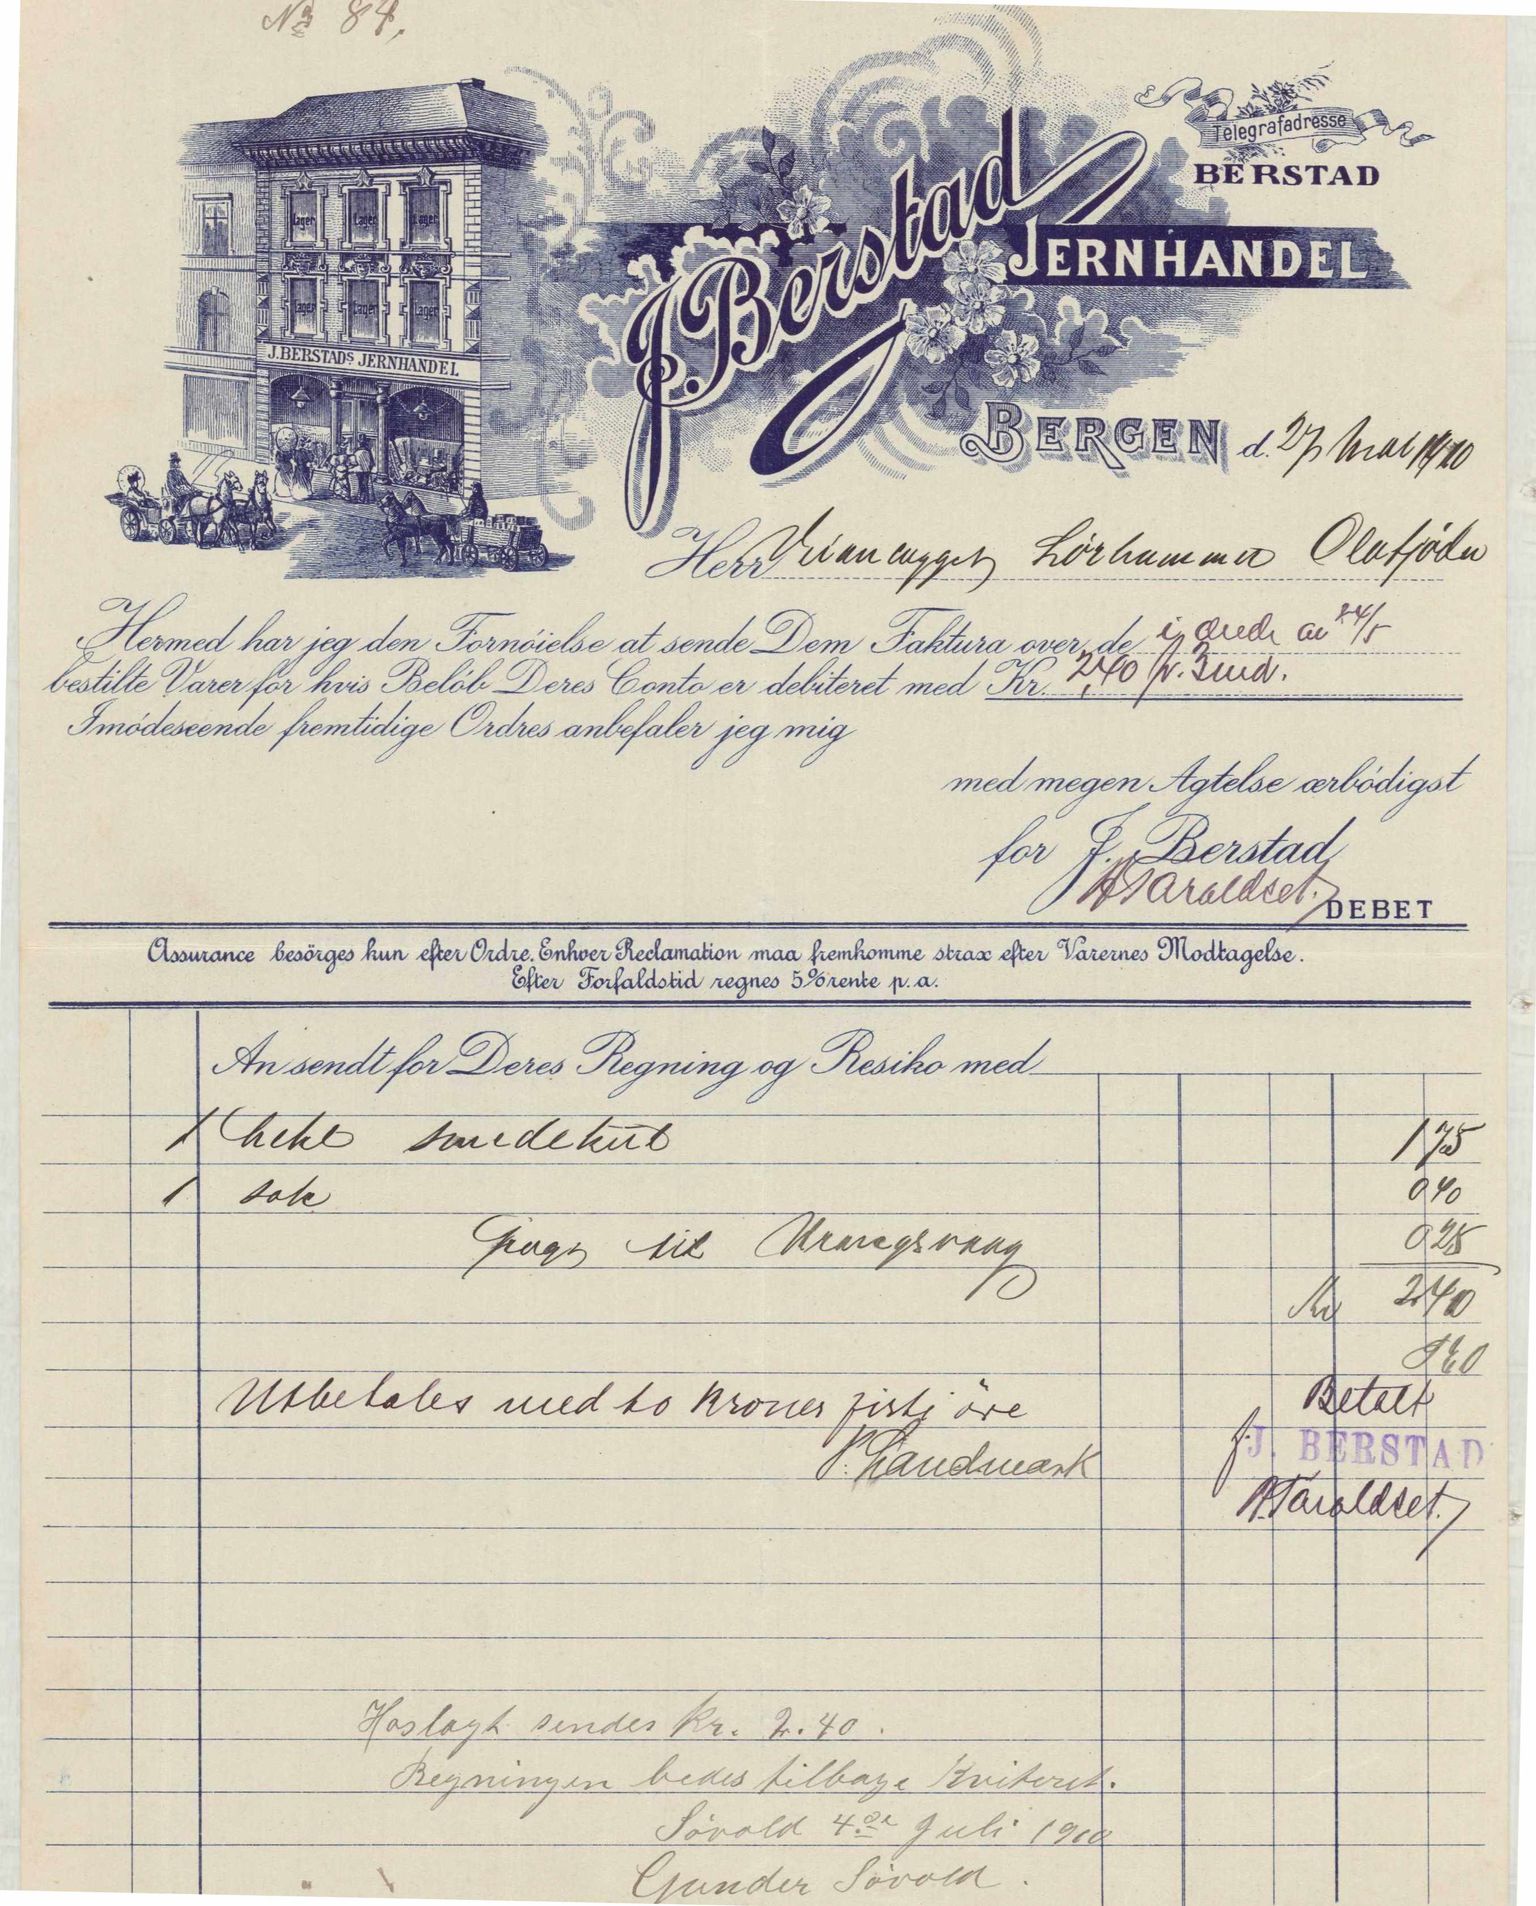 No 84.
Lager Lager Lager
Lager Lager Lager
J. BERSTADS JERNHANDEL
Telegrafadresse
BERSTAD
J. Berstad
JERNHANDEL
BERGEN d. 27 Mai 1910
Herr
Hermed har jeg den Fornöielse at sende Dem Faktura over de i ordr av 24/5
bestilte Varer for hvis Belöb Deres Conto er debiteret med Kr. 2,40 pr. 3 md.
Imödeseende fremtidige Ordres anbefaler jeg mig
med megen Agtelse ærbödigst
for J. Berstad
Taraldset.
DEBET
Assurance besörges kun efter Ordre. Enhver Reclamation maa fremkomme strax efter Varernes Modtagelse.
Efter Forfaldstid regnes 5% rente p.a.
An sendt for Deres Regning og Resiko med
1 hekt smedekul 1 75
1 sæk 0 40
til 0 25
Kr 2.40
Utbetales med to kroner firti öre
P. Landmark
Betalt
f. J. BERSTAD
Taraldset.
Hoslagt sendes Kr. 2.40.
Regningen bedes tilbage kviteret.
Sövold 4de Juli 1910
Gunder Sövold.